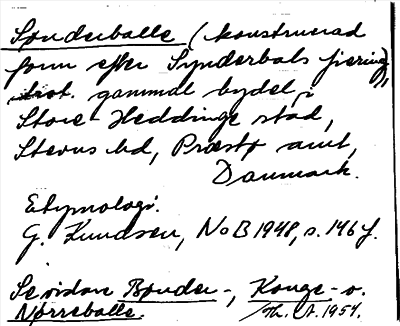 Sønderballe (konstruerad
form efter Synderbals fiering),
hist. gammal bydel i
Store Heddinge stad,
Stevns hd, Præstø amt,
Danmark.
Etymologi.
G. Knudsen, NoB 1948, s. 146 f.
Se vidare Bønder-, Konge- o.
Nørreballe. Th. A. 1954.